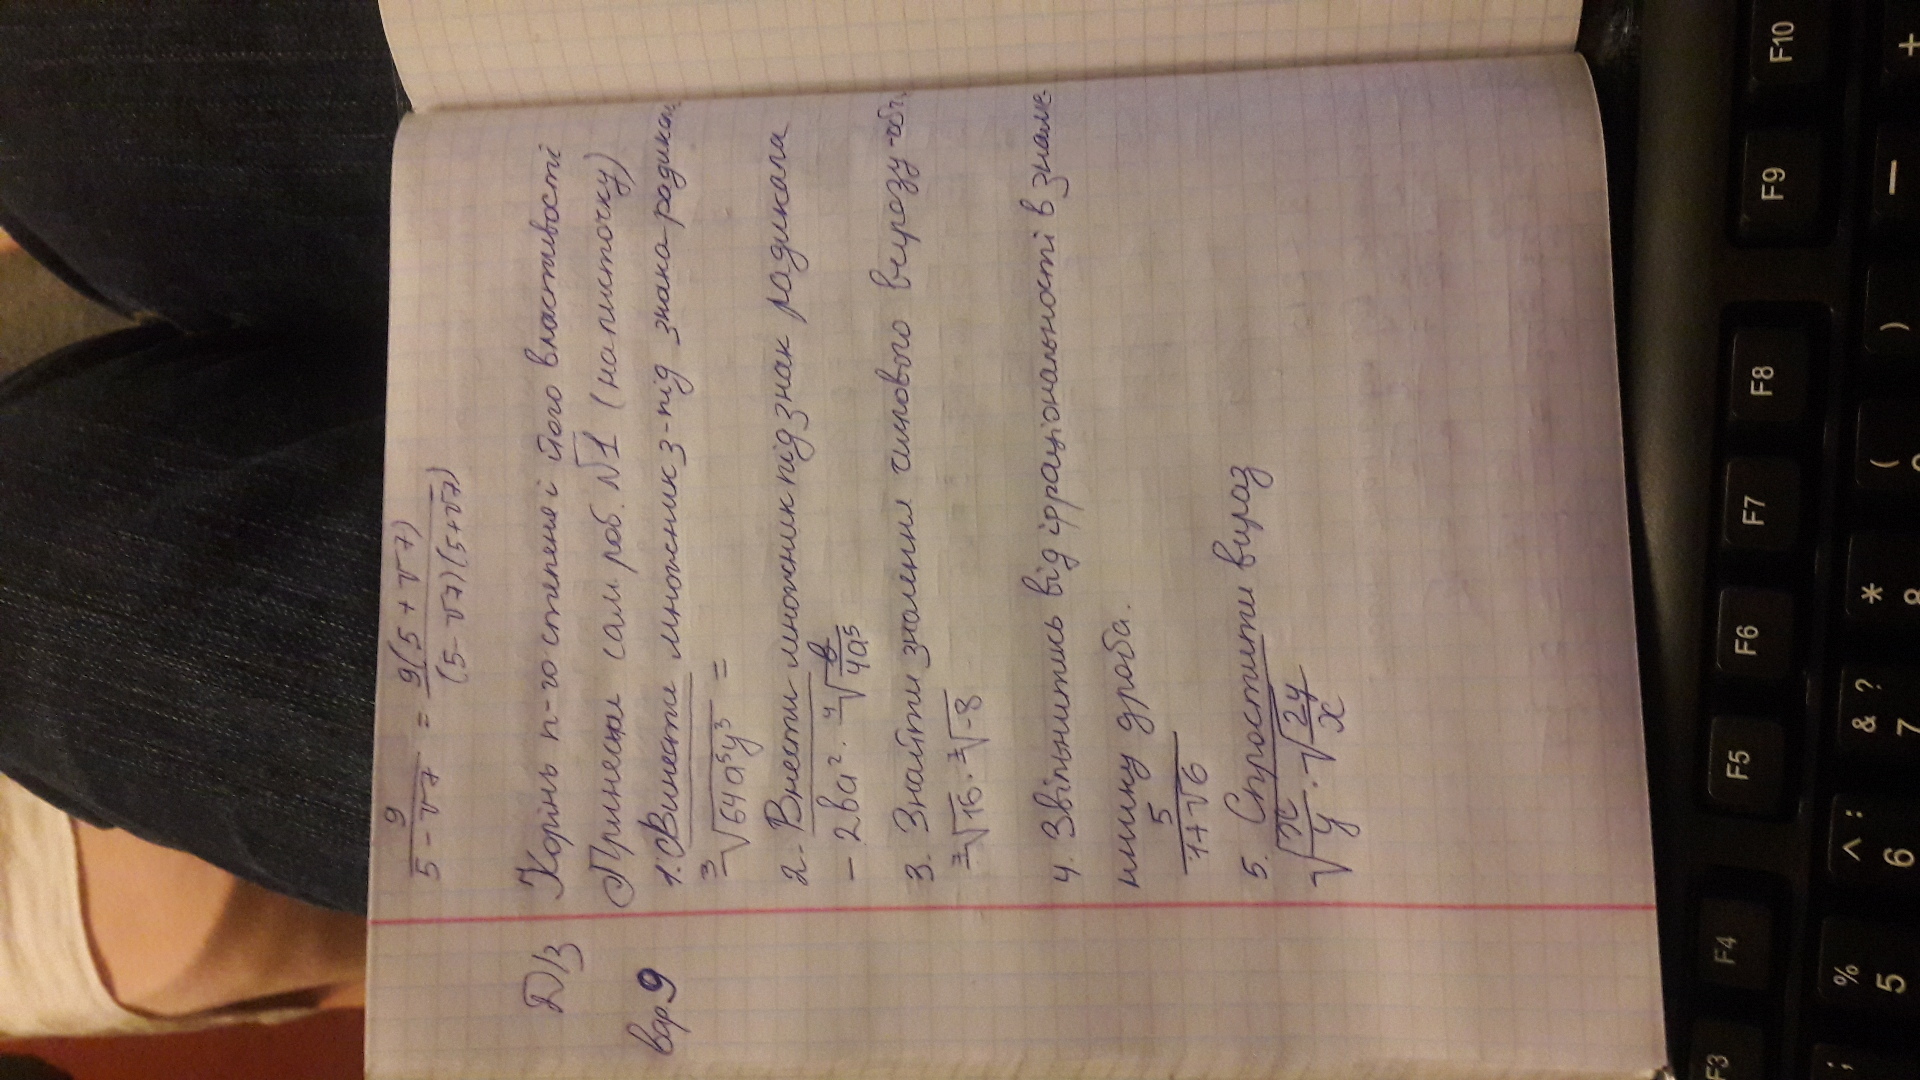 9/(5-√7) = 9(5+√7)/((5-√7)(5+√7))
Д/з Корінь n-го степеня і його властивості
Принесем сам. роб. №1 (на листочку)
вар 9 1. Винести множник з-під знака радикал.
³√(64a⁵y³) =
2. Внести множник під знак радикала
-2ba² · ⁴√(b/(4a⁵))
3. Знайти значення числового виразу
⁷√16 · ⁷√-8
4. Звільнитись від ірраціональності в знаме-
ннику дроба.
5/(1+√6)
5. Спростити вираз
√(x/y) · √(2y/x)
F3
F4
F5
F6
F7
F8
F9
F10
% 5
^ : 6
& ? 7
* 8
(
)
−
+